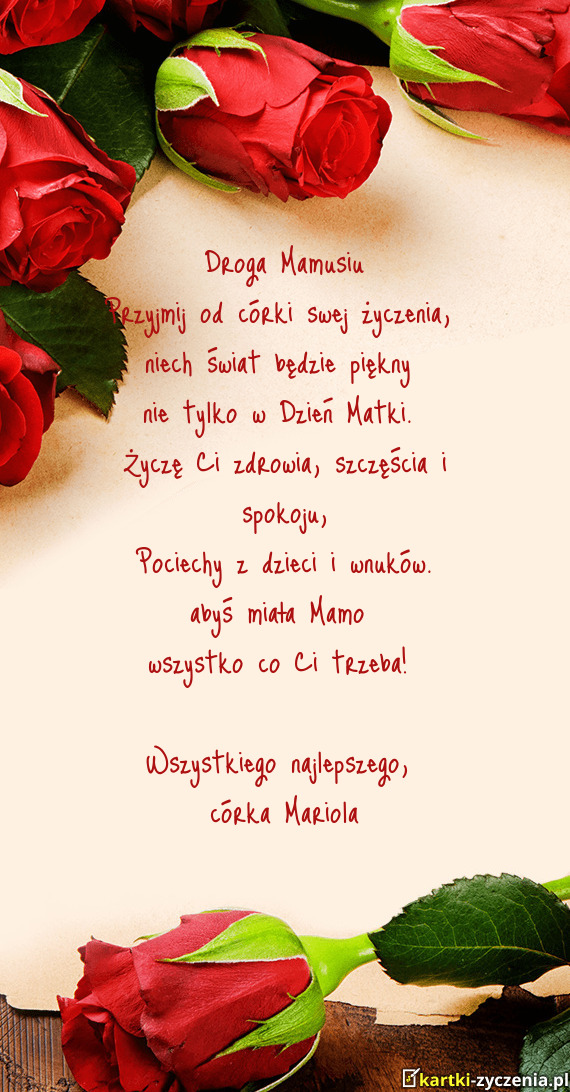 Droga Mamusiu
Przyjmij od córki swej życzenia,
niech świat będzie piękny
nie tylko w Dzień Matki.
Życzę Ci zdrowia, szczęścia i
spokoju,
Pociechy z dzieci i wnuków.
abyś miała Mamo
wszystko co Ci trzeba!
Wszystkiego najlepszego,
córka Mariola
kartki-zyczenia.pl